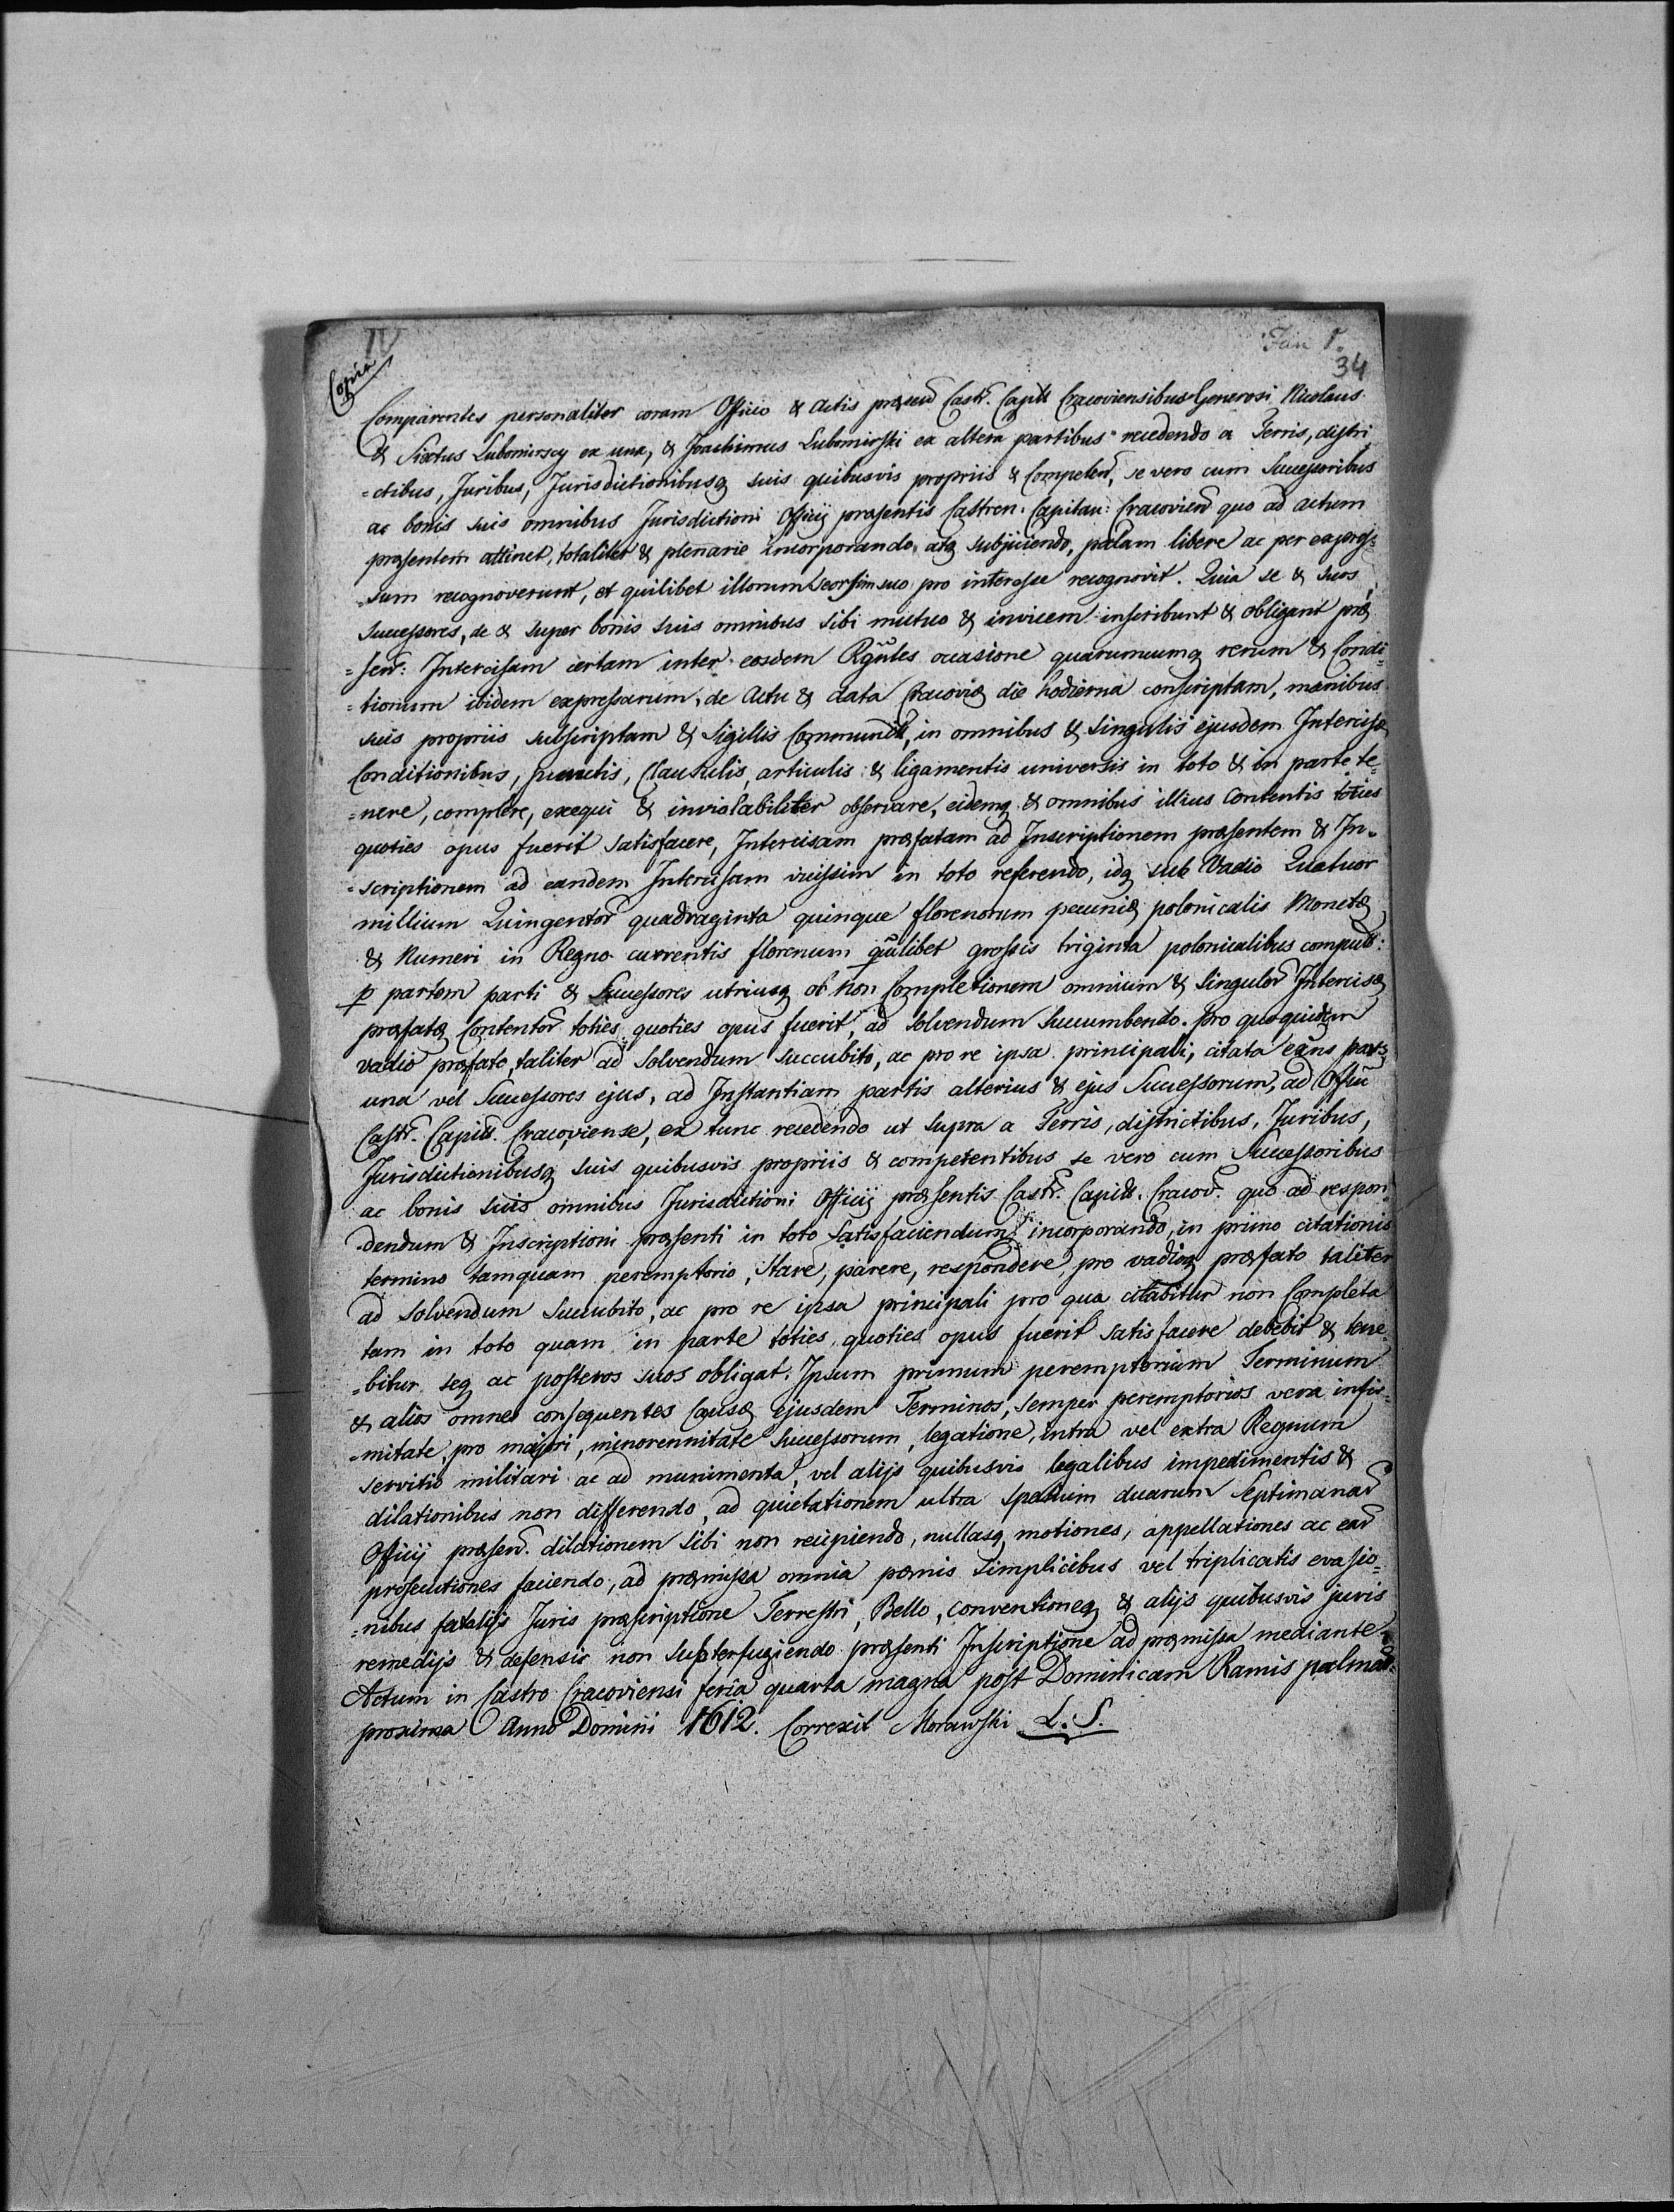 IV
Copia
34
Comparentes personaliter coram Officio & Actis præsen. Castr. Capit. Cracoviensibus Generosi Nicolaus
& Sixtus Lubomirscy ex una, & Joachimus Lubomirski ex altera partibus recedendo a Terris, distri
=ctibus, Juribus, Jurisdictionibusq suis quibusvis propriis & Competen, se vero cum Successoribus
ac bonis suis omnibus Jurisdictioni Officij præsentis Castren. Capitan: Cracovien quo ad actum
præsentem attinet, totaliter & plenarie incorporando, atq subjiciendo, palam libere ac per expres=
=sum recognoverunt, et quilibet illorum seorsim suo pro interesse recognovit. Quia se & suos
Successores, de & super bonis suis omnibus sibi mutuo & invicem inscribunt & obligant præ
=sen: Intercisam certam inter eosdem Rgnles occasione quarumcumq rerum & Condi=
=tionum ibidem expressarum, de Actu & data Cracoviæ die hodierna conscriptam, manibus
suis propriis subscriptam & Sigillis Communit, in omnibus & singulis ejusdem Intercisæ
Conditionibus, punctis, Clausulis, articulis & ligamentis universis in toto & in parte te=
=nere, complere, exequi & inviolabiliter observare, eidemq & omnibus illius Contentis toties
quoties opus fuerit satisfacere, Intercisam præfatam ad Inscriptionem præsentem & In=
=scriptionem ad eandem Intercisam vicissim in toto referendo, idq sub Vadio Quatuor
millium Quingentor quadraginta quinque florenorum pecuniæ polonicalis Monetæ
& Numeri in Regno currentis florenum qũlibet grossis triginta polonicalibus comput:
p partem parti & Successores utriusq ob non Completionem omnium & singulor Intercisæ
præfatæ Contentor toties quoties opus fuerit, ad solvendum succumbendo. Pro quo quidem
vadio præfato, taliter ad solvendum succubito, ac pro re ipsa principali, citata eãns pars
una vel Successores ejus, ad Instantiam partis alterius & ejus Successorum, ad Offiũ
Castr. Capit. Cracoviense, ex tunc recedendo ut supra a Terris, districtibus, Juribus,
Jurisdictionibusq suis quibusvis propriis & competentibus se vero cum Successoribus
ac bonis suis omnibus Jurisdictioni Officij præsentis Castr. Capit. Cracov. quo ad respon
=dendum & Inscriptioni præsenti in toto satisfaciendum incorporando, in primo citationis
termino tamquam peremptorio, stare, parere, respondere, pro vadioq præfato taliter
ad solvendum succubito, ac pro re ipsa principali pro qua citabitur non Completa
tam in toto quam in parte toties, quoties opus fuerit satisfacere debebit & tene
=bitur seq ac posteros suos obligat. Ipsum primum peremptorium Terminum
& alios omnes consequentes Causæ ejusdem Terminos, semper peremptorios vera infir=
=mitate, pro majori, minorennitate Successorum, legatione, intra vel extra Regnum
servitio militari ac ad munimenta, vel alijs quibusvis legalibus impedimentis &
dilationibus non differendo, ad quietationem ultra spatium duarum Septimanar
Officij præsen. dilationem sibi non recipiendo, nullasq motiones, appellationes ac ear
prosecutiones faciendo, ad præmissa omnia pænis simplicibus vel triplicatis evasio=
=nibus fatalijs Juris præscriptione Terrestri, Bello, conventioneq & alijs quibusvis juris
remedijs & defensis non subterfugiendo præsenti Inscriptione ad præmissa mediante
Actum in Castro Cracoviensi feria quarta magna post Dominicam Ramis palmar
proxima Anno Domini 1612. Correxit Morawski L. S.